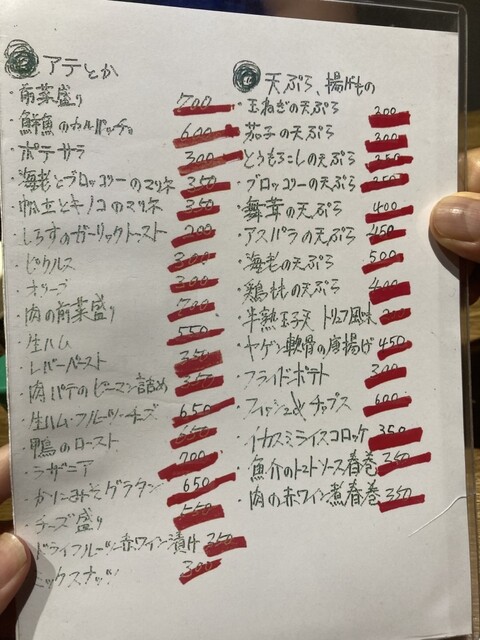 アテとか
・前菜盛り 700
・鮮魚のカルパッチョ 600
・ポテサラ 300
・海老とブロッコリーのマリネ 350
・帆立とキノコのマリネ 350
・しらすのガーリックトースト 200
・ピクルス 300
・オリーブ 300
・肉の前菜盛り 700
・生ハム 550
・レバーペースト 350
・肉パテのピーマン詰め 350
・生ハム・フルーツ・チーズ 650
・鴨のロースト 650
・ラザニア 700
・かにみそグラタン 650
・チーズ盛り 550
・ドライフルーツ赤ワイン漬け 350
ミックスナッツ 300
天ぷら、揚げもの
・玉ねぎの天ぷら 200
・茄子の天ぷら 300
・とうもろこしの天ぷら 250
・ブロッコリーの天ぷら 250
・舞茸の天ぷら 400
・アスパラの天ぷら 450
・海老の天ぷら 500
・鶏ももの天ぷら 400
・半熟玉子天 トリュフ風味
・ヤゲン軟骨の唐揚げ 450
・フライドポテト 300
・フィッシュ&チップス 600
・イカスミライスコロッケ 350
・魚介のトマトソース春巻 350
・肉の赤ワイン煮春巻 350